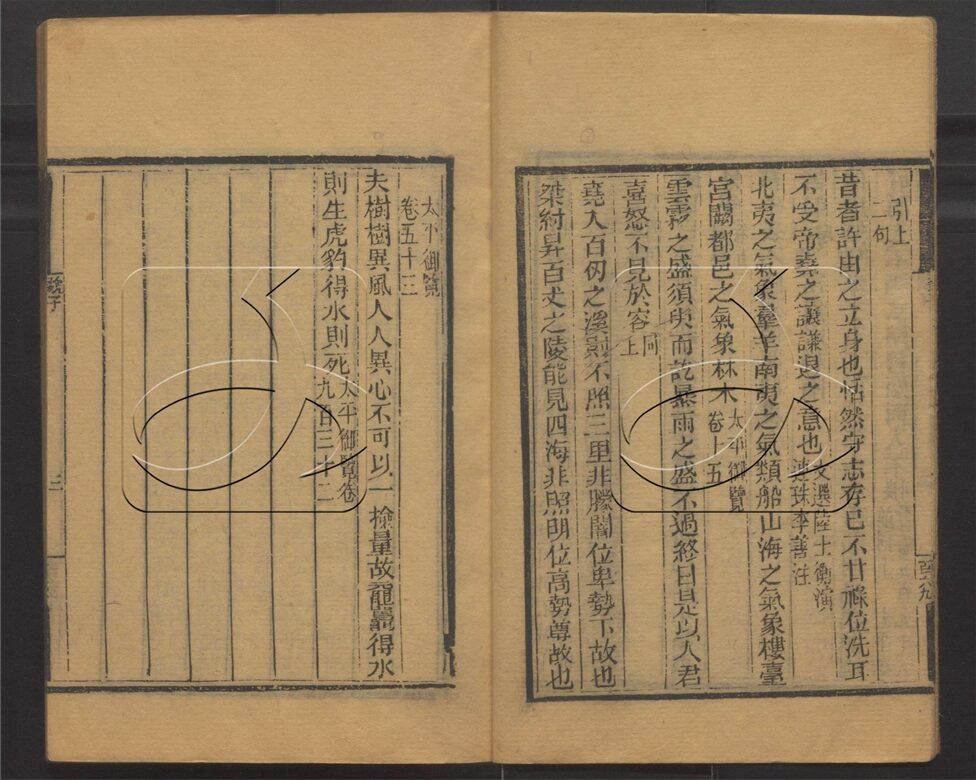 引上
二句
昔者許由之立身也恬然守志存己不甘祿位洗耳
不受帝堯之讓謙退之意也文選陸士衡演
連珠李善注
北夷之氣象羣羊南夷之氣類船山海之氣象樓臺
宮闕都邑之氣象林木太平御覽
卷十五
雲霧之盛須臾而訖暴雨之盛不過終日是以人君
喜怒不見於容同
上
堯入百仞之溪則不照三里非朦闇位卑勢下故也
桀紂昇百丈之陵能見四海非照明位高勢尊故也
太平御覽
卷五十三
夫樹樹異風人人異心不可以一檢量故龍鼉得水
則生虎豹得水則死太平御覽卷
九百三十二
三